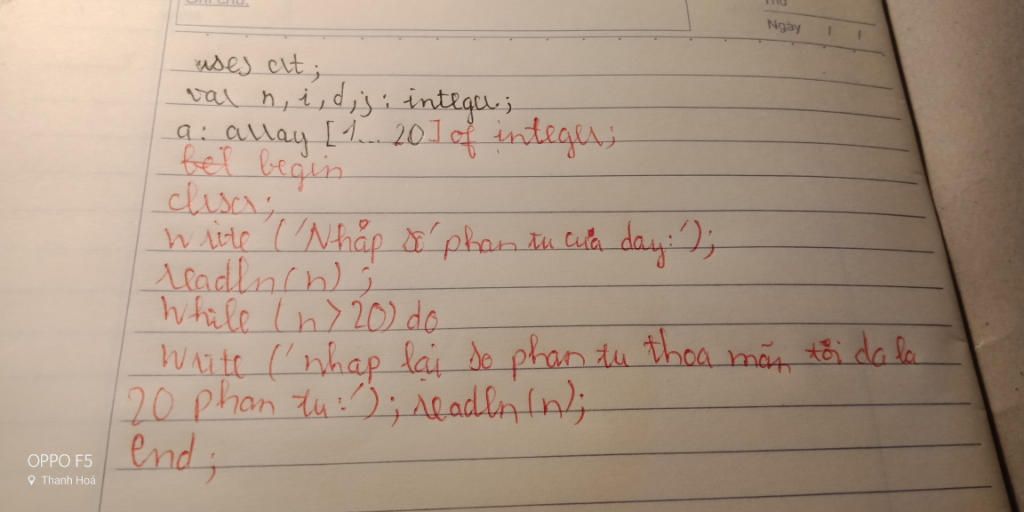 Ghi chú:
Thứ
Ngày / /
uses crt;
var n, i, d, j : integer;
a : array [1... 20] of integer;
begin
clrscr;
write ('Nhập số phan tu của day:');
readln(n);
while (n > 20) do
write ('nhap lại so phan tu thoa mãn tối da la
20 phan tu:'); readln(n);
end;
OPPO F5
Thanh Hoá